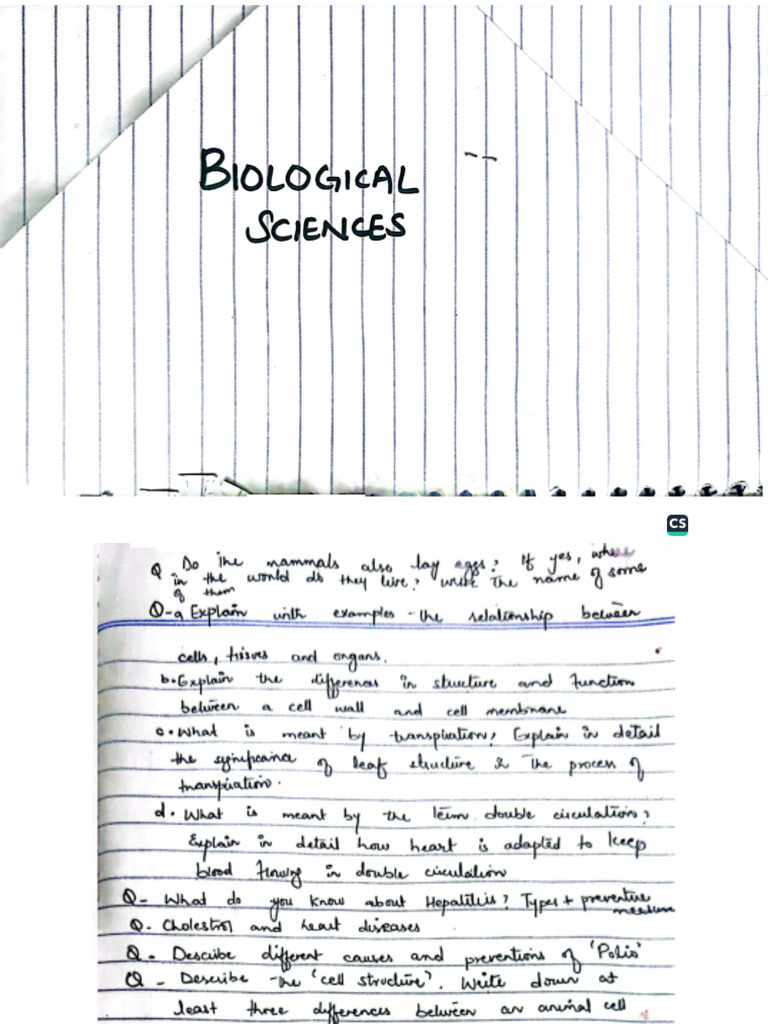 BIOLOGICAL
SCIENCES
CS
Q Do the mammals also lay eggs? If yes, where
in the world do they live? write the name of some
of them
Q-a Explain with examples the relationship between
cells, tissues and organs.
b. Explain the differences in structure and function
between a cell wall and cell membrane
c. What is meant by transpiration? Explain in detail
the significance of leaf structure & the process of
transpiration.
d. What is meant by the term double circulation?
Explain in detail how heart is adapted to keep
blood flowing in double circulation
Q- What do you know about Hepatitis? Types + preventive
measure
Q. Cholestrol and heart diseases
Q- Describe different causes and preventions of 'Polio'
Q - Describe the 'cell structure'. Write down at
least three differences between an animal cell